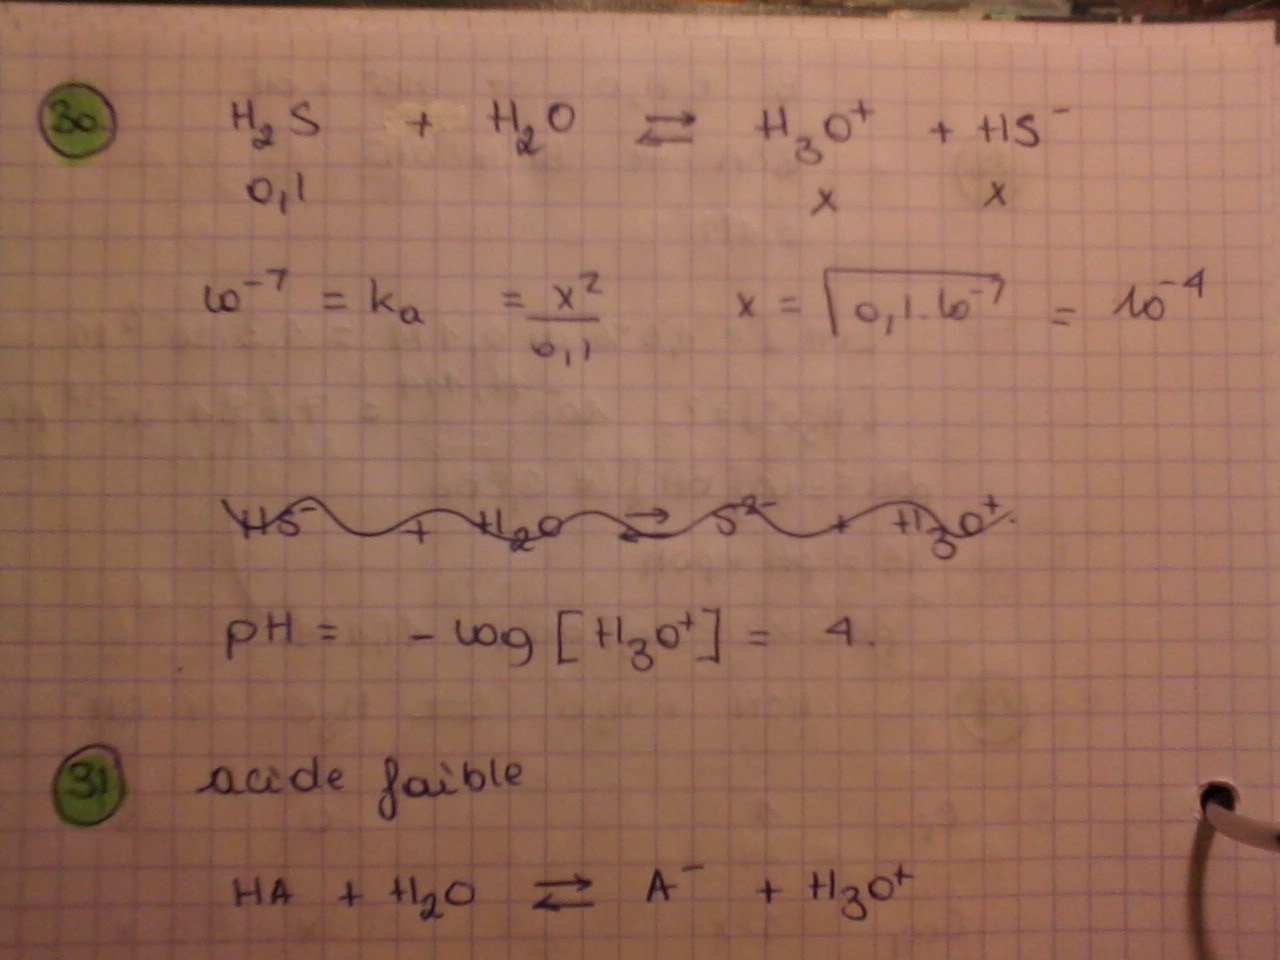 30 H₂S + H₂O ⇄ H₃O⁺ + HS⁻
0,1 x x
10⁻⁷ = ka = x²/0,1 x = √0,1.10⁻⁷ = 10⁻⁴
HS⁻ + H₂O ⇄ S²⁻ + H₃O⁺.
pH = - log [H₃O⁺] = 4.
31 acide faible
HA + H₂O ⇄ A⁻ + H₃O⁺